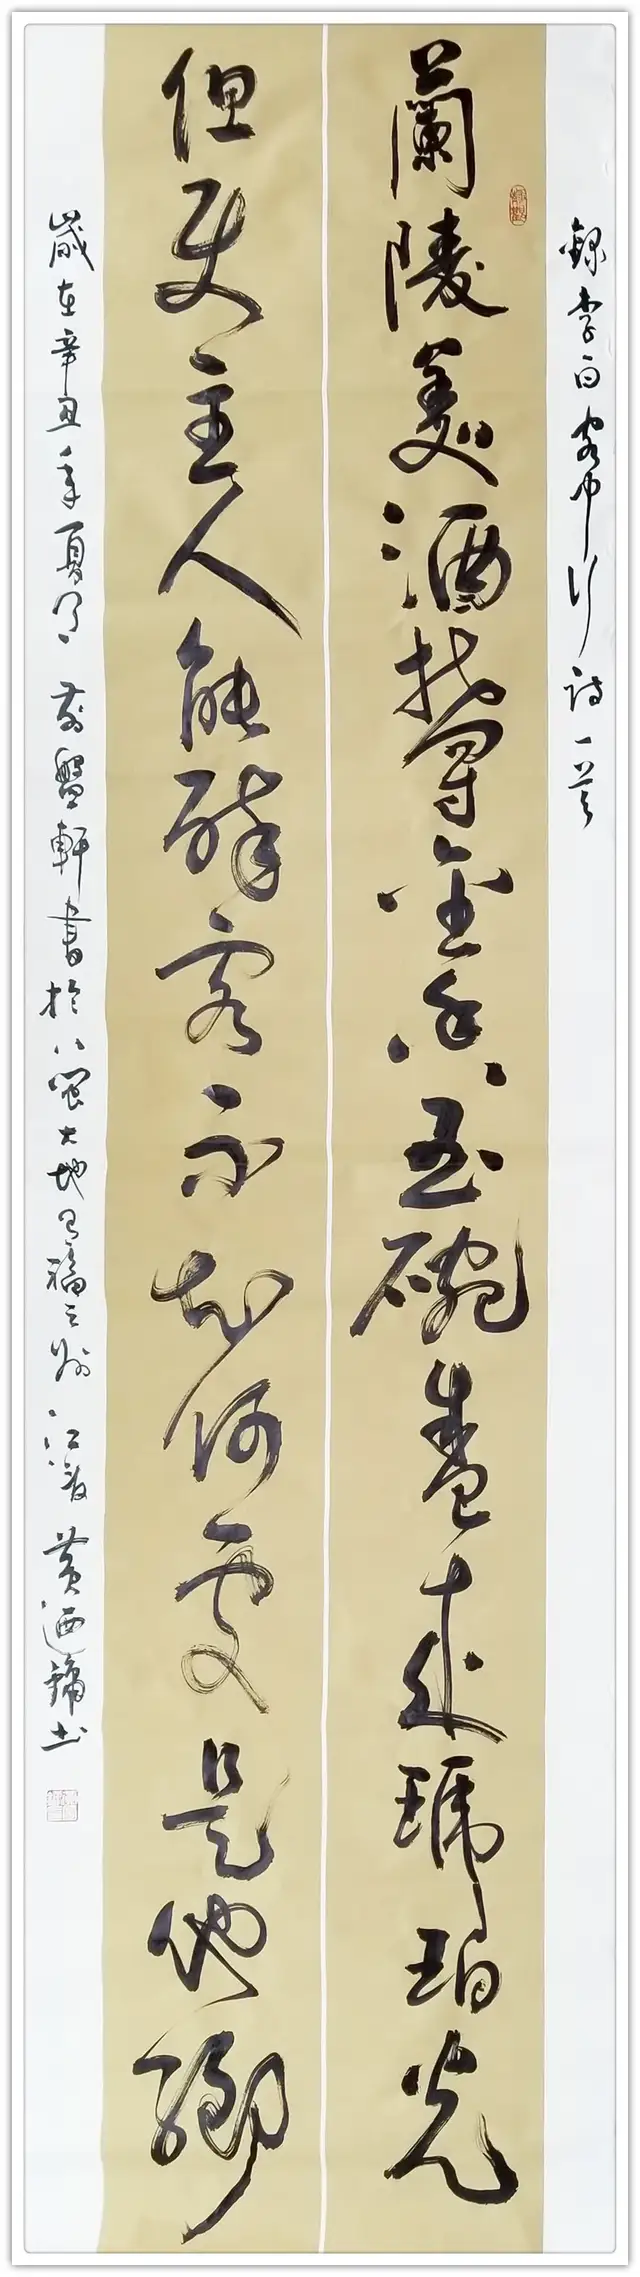 錄李白客中行詩一首
蘭陵美酒鬱金香玉碗盛來琥珀光
但使主人能醉客不知何處是他鄉
歲在辛丑年夏月 盤軒書於八閩大地有福之州江濱黃迺鏞书